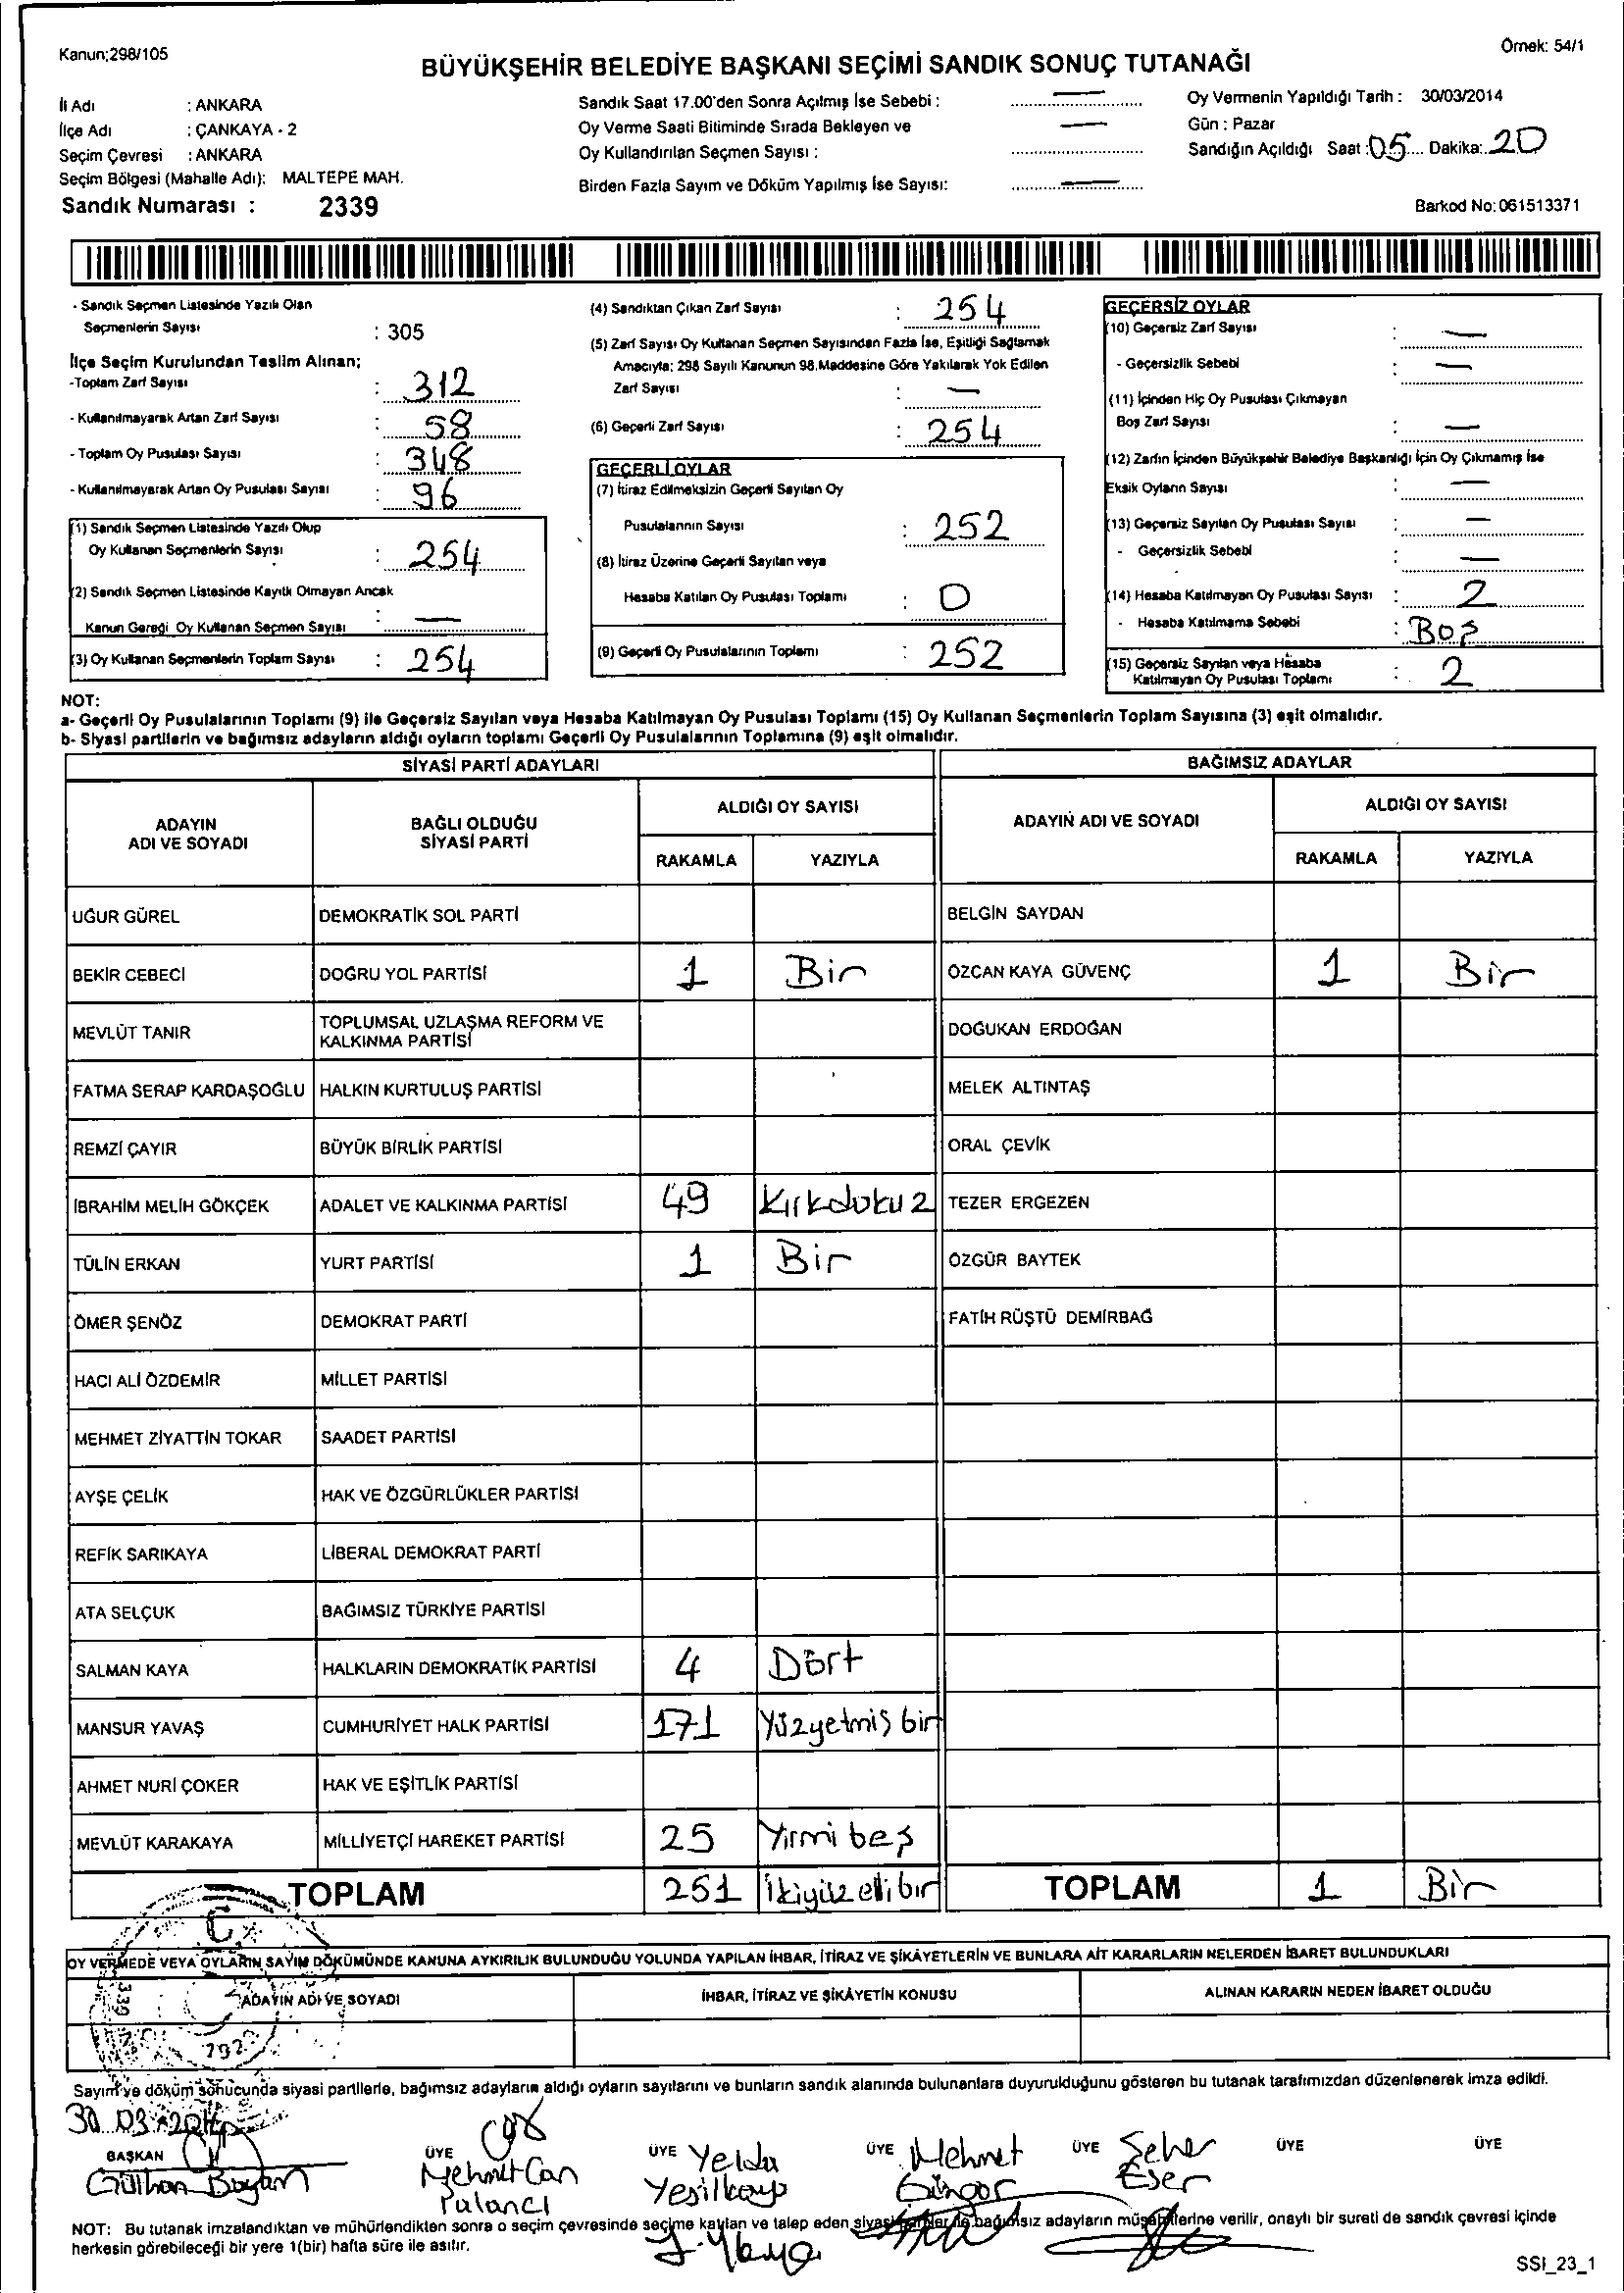 Kanun;298/105
Örnek: 54/1
BÜYÜKŞEHİR BELEDİYE BAŞKANI SEÇİMİ SANDIK SONUÇ TUTANAĞI
İl Adı : ANKARA
İlçe Adı : ÇANKAYA - 2
Seçim Çevresi : ANKARA
Seçim Bölgesi (Mahalle Adı): MALTEPE MAH.
Sandık Numarası : 2339
Sandık Saat 17.00'den Sonra Açılmış İse Sebebi : —
Oy Verme Saati Bitiminde Sırada Bekleyen ve —
Oy Kullandırılan Seçmen Sayısı :
Birden Fazla Sayım ve Döküm Yapılmış İse Sayısı: —
Oy Vermenin Yapıldığı Tarih : 30/03/2014
Gün : Pazar
Sandığın Açıldığı Saat : 05 Dakika: 20
Barkod No: 061513371
- Sandık Seçmen Listesinde Yazılı Olan
Seçmenlerin Sayısı : 305
İlçe Seçim Kurulundan Teslim Alınan;
-Toplam Zarf Sayısı : 312
- Kullanılmayarak Artan Zarf Sayısı : 58
- Toplam Oy Pusulası Sayısı : 348
- Kullanılmayarak Artan Oy Pusulası Sayısı : 96
(1) Sandık Seçmen Listesinde Yazılı Olup
Oy Kullanan Seçmenlerin Sayısı : 254
(2) Sandık Seçmen Listesinde Kayıtlı Olmayan Ancak
Kanun Gereği Oy Kullanan Seçmen Sayısı : —
(3) Oy Kullanan Seçmenlerin Toplam Sayısı : 254
(4) Sandıktan Çıkan Zarf Sayısı : 254
(5) Zarf Sayısı Oy Kullanan Seçmen Sayısından Fazla İse, Eşitliği Sağlamak
Amacıyla; 298 Sayılı Kanunun 98.Maddesine Göre Yakılarak Yok Edilen
Zarf Sayısı : —
(6) Geçerli Zarf Sayısı : 254
GEÇERLİ OYLAR
(7) İtiraz Edilmeksizin Geçerli Sayılan Oy
Pusulalarının Sayısı : 252
(8) İtiraz Üzerine Geçerli Sayılan veya
Hesaba Katılan Oy Pusulası Toplamı : 0
(9) Geçerli Oy Pusulalarının Toplamı : 252
GEÇERSİZ OYLAR
(10) Geçersiz Zarf Sayısı : —
- Geçersizlik Sebebi : —
(11) İçinden Hiç Oy Pusulası Çıkmayan
Boş Zarf Sayısı : —
(12) Zarfın İçinden Büyükşehir Belediye Başkanlığı İçin Oy Çıkmamış İse
Eksik Oyların Sayısı : —
(13) Geçersiz Sayılan Oy Pusulası Sayısı : —
- Geçersizlik Sebebi : —
(14) Hesaba Katılmayan Oy Pusulası Sayısı : 2
- Hesaba Katılmama Sebebi : Boş
(15) Geçersiz Sayılan veya Hesaba
Katılmayan Oy Pusulası Toplamı : 2
NOT:
a- Geçerli Oy Pusulalarının Toplamı (9) ile Geçersiz Sayılan veya Hesaba Katılmayan Oy Pusulası Toplamı (15) Oy Kullanan Seçmenlerin Toplam Sayısına (3) eşit olmalıdır.
b- Siyasi partilerin ve bağımsız adayların aldığı oyların toplamı Geçerli Oy Pusulalarının Toplamına (9) eşit olmalıdır.
SİYASİ PARTİ ADAYLARI BAĞIMSIZ ADAYLAR
ADAYIN ADI VE SOYADI BAĞLI OLDUĞU SİYASİ PARTİ ALDIĞI OY SAYISI ADAYIN ADI VE SOYADI ALDIĞI OY SAYISI
RAKAMLA YAZIYLA RAKAMLA YAZIYLA
UĞUR GÜREL DEMOKRATİK SOL PARTİ BELGİN SAYDAN
BEKİR CEBECİ DOĞRU YOL PARTİSİ 1 Bir ÖZCAN KAYA GÜVENÇ 1 Bir
MEVLÜT TANIR TOPLUMSAL UZLAŞMA REFORM VE KALKINMA PARTİSİ DOĞUKAN ERDOĞAN
FATMA SERAP KARDAŞOĞLU HALKIN KURTULUŞ PARTİSİ MELEK ALTINTAŞ
REMZİ ÇAYIR BÜYÜK BİRLİK PARTİSİ ORAL ÇEVİK
İBRAHİM MELİH GÖKÇEK ADALET VE KALKINMA PARTİSİ 49 Kırkdokuz TEZER ERGEZEN
TÜLİN ERKAN YURT PARTİSİ 1 Bir ÖZGÜR BAYTEK
ÖMER ŞENÖZ DEMOKRAT PARTİ FATİH RÜŞTÜ DEMİRBAĞ
HACI ALİ ÖZDEMİR MİLLET PARTİSİ
MEHMET ZİYATTİN TOKAR SAADET PARTİSİ
AYŞE ÇELİK HAK VE ÖZGÜRLÜKLER PARTİSİ
REFİK SARIKAYA LİBERAL DEMOKRAT PARTİ
ATA SELÇUK BAĞIMSIZ TÜRKİYE PARTİSİ
SALMAN KAYA HALKLARIN DEMOKRATİK PARTİSİ 4 Dört
MANSUR YAVAŞ CUMHURİYET HALK PARTİSİ 171 Yüzyetmiş bir
AHMET NURİ ÇOKER HAK VE EŞİTLİK PARTİSİ
MEVLÜT KARAKAYA MİLLİYETÇİ HAREKET PARTİSİ 25 Yirmi beş
TOPLAM 251 İkiyüz elli bir TOPLAM 1 Bir
OY VERMEDE VEYA OYLARIN SAYIM DÖKÜMÜNDE KANUNA AYKIRILIK BULUNDUĞU YOLUNDA YAPILAN İHBAR, İTİRAZ VE ŞİKÂYETLERİN VE BUNLARA AİT KARARLARIN NELERDEN İBARET BULUNDUKLARI
ADAYIN ADI VE SOYADI İHBAR, İTİRAZ VE ŞİKÂYETİN KONUSU ALINAN KARARIN NEDEN İBARET OLDUĞU
Sayım ve döküm sonucunda siyasi partilerle, bağımsız adayların aldığı oyların sayılarını ve bunların sandık alanında bulunanlara duyurulduğunu gösteren bu tutanak tarafımızdan düzenlenerek imza edildi.
30.03.2014
BAŞKAN ÜYE ÜYE Yelda ÜYE Mehmet ÜYE Seher ÜYE ÜYE
Mehmet Can Yeşilkaya Güngör Eser
Palancı
NOT: Bu tutanak imzalandıktan ve mühürlendikten sonra o seçim çevresinde seçime katılan ve talep eden siyasi partiler ile bağımsız adayların müşahitlerine verilir, onaylı bir sureti de sandık çevresi içinde
herkesin görebileceği bir yere 1(bir) hafta süre ile asılır.
SSI_23_1